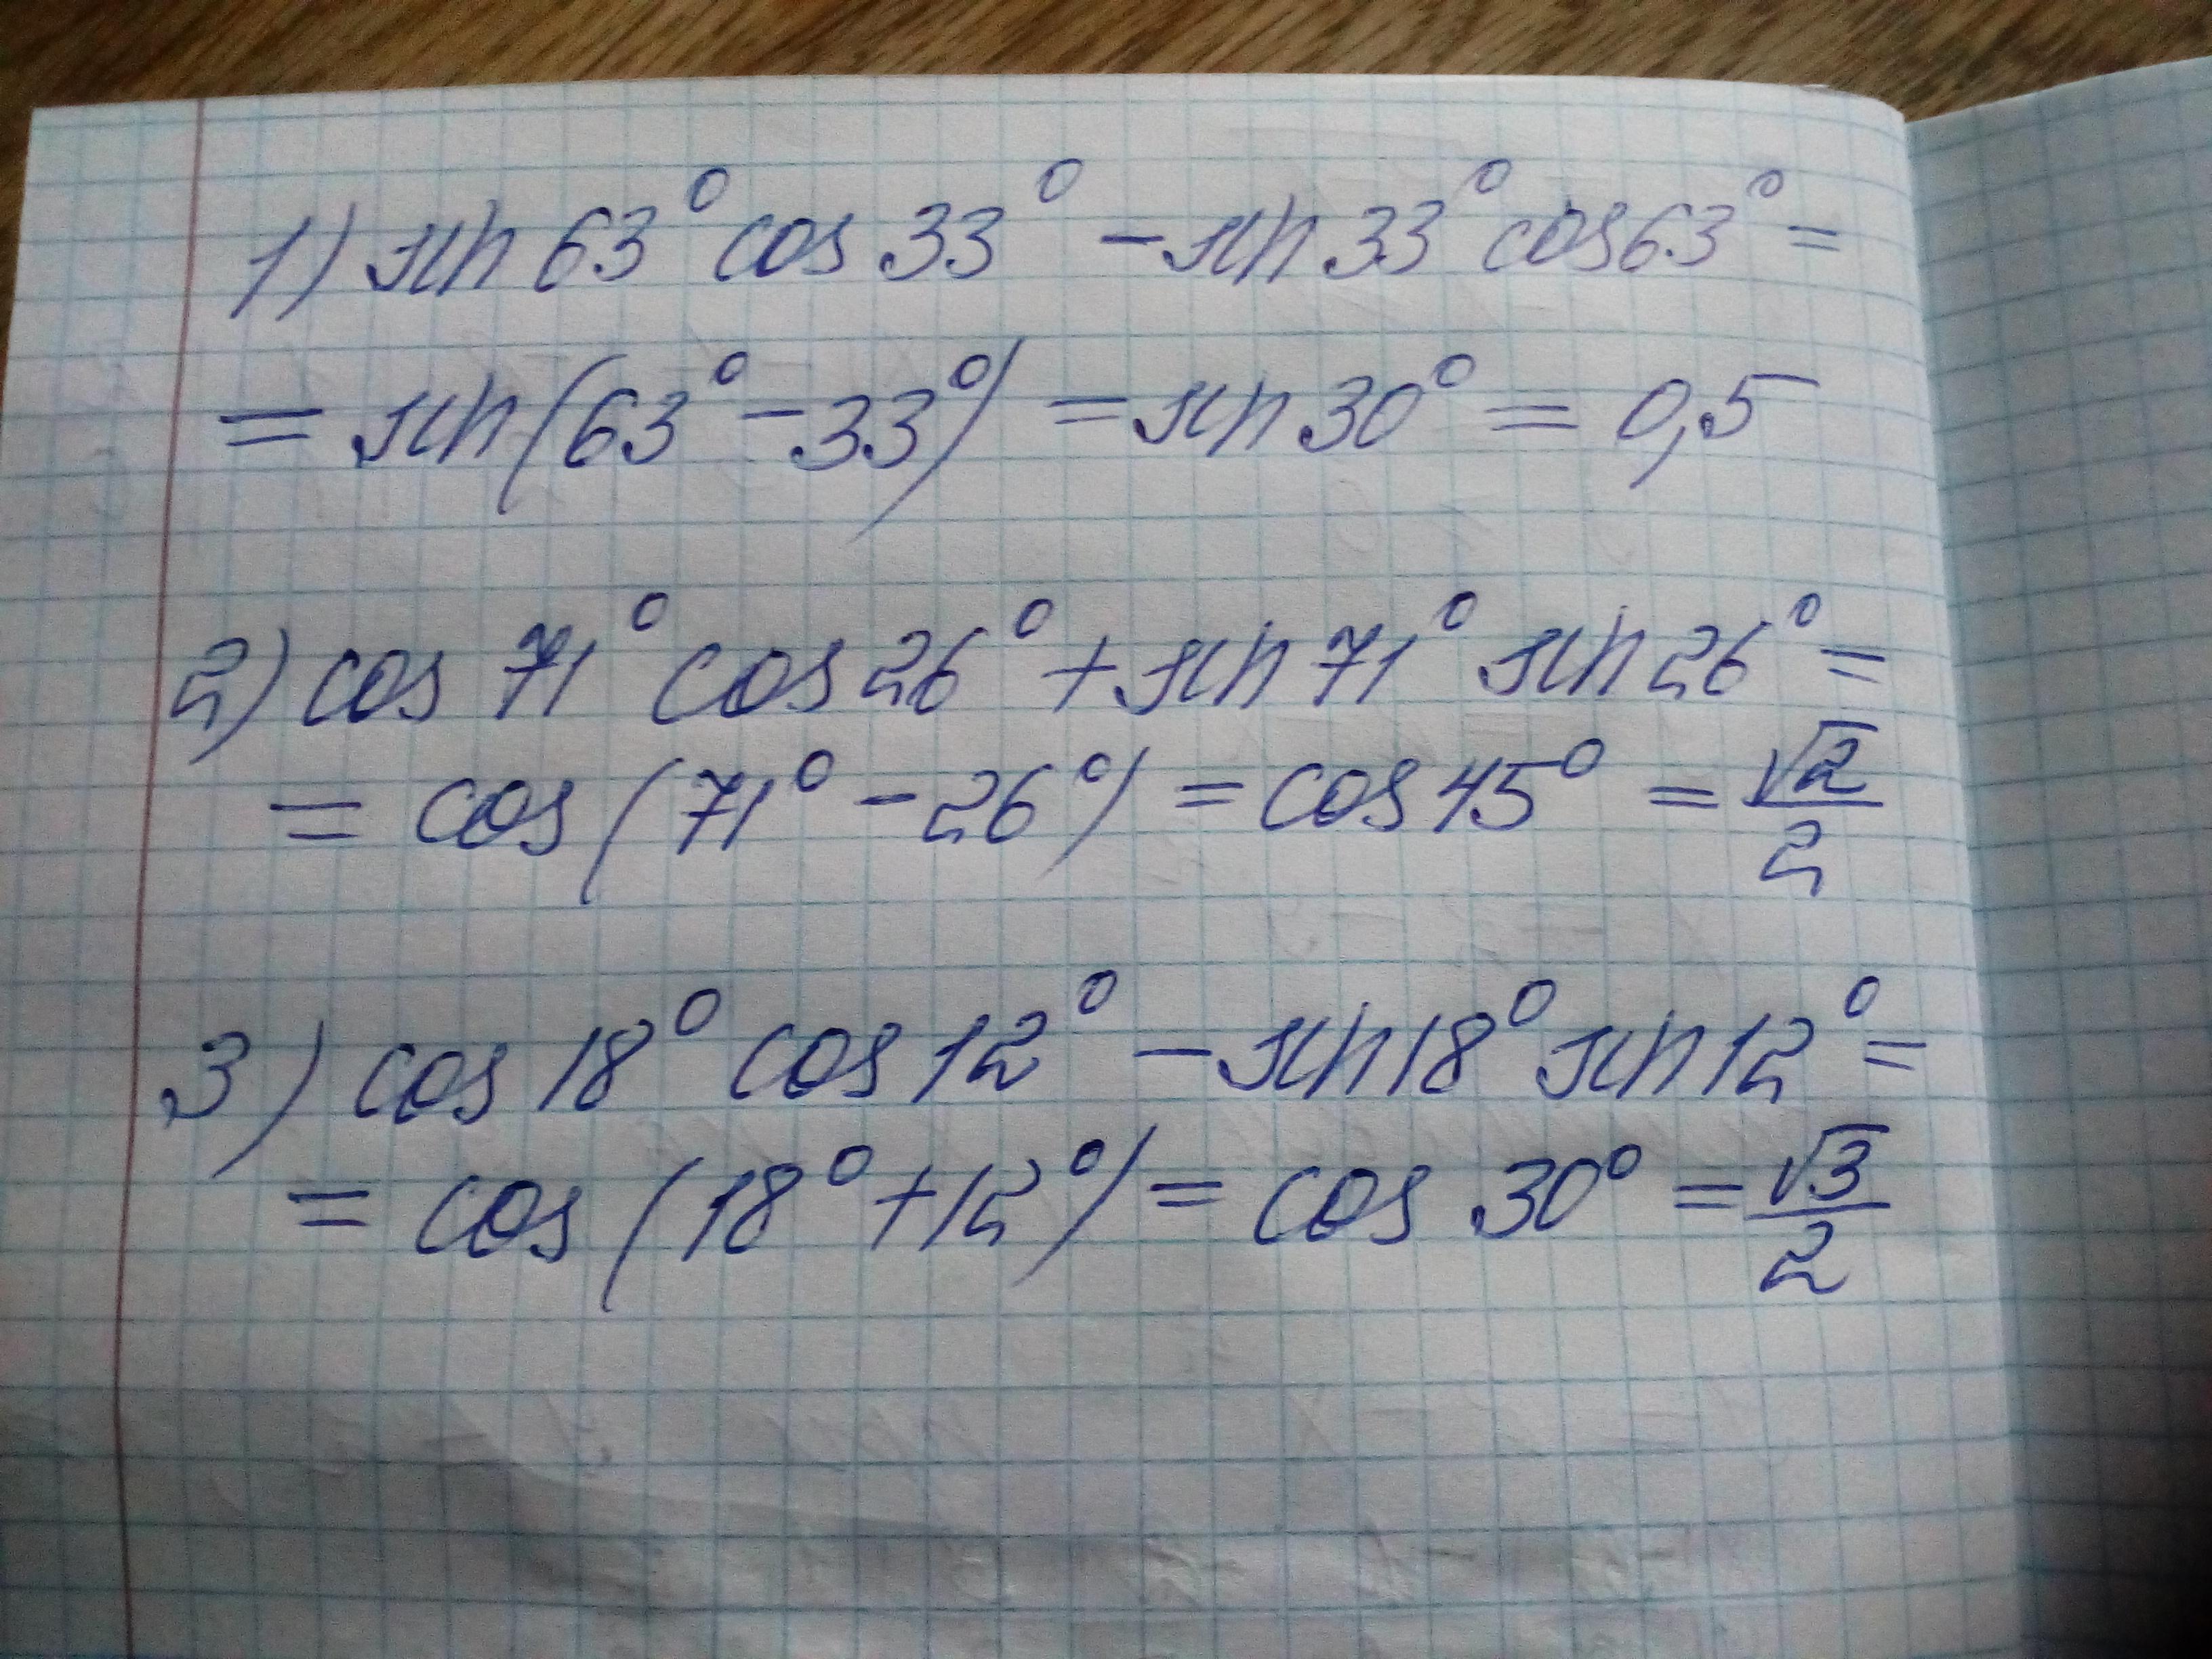 1) sin 63° cos 33° - sin 33° cos 63° =
= sin(63° - 33°) = sin 30° = 0,5
2) cos 71° cos 26° + sin 71° sin 26° =
= cos(71° - 26°) = cos 45° = √2/2
3) cos 18° cos 12° - sin 18° sin 12° =
= cos(18° + 12°) = cos 30° = √3/2